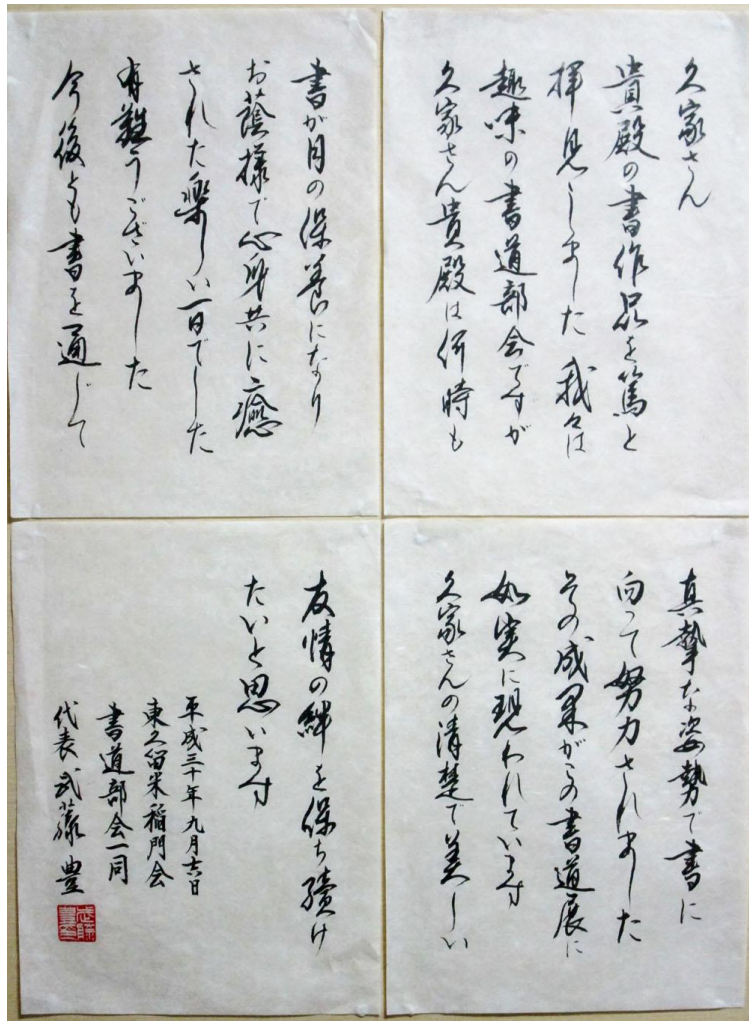 久家さん
貴殿の書作品を篤と
拝見しました 我々は
趣味の書道部会ですが
久家さん貴殿は何時も
真摯な姿勢で書に
向って努力されました
その成果がこの書道展に
如実に現われています
久家さんの清楚で美しい
書が目の保養になり
お蔭様で心身共に癒
された楽しい一日でした
有難うございました
今後とも書を通じて
友情の絆を保ち続け
たいと思います
平成三十年九月十六日
東久留米稲門会
書道部会一同
代表 武藤 豊